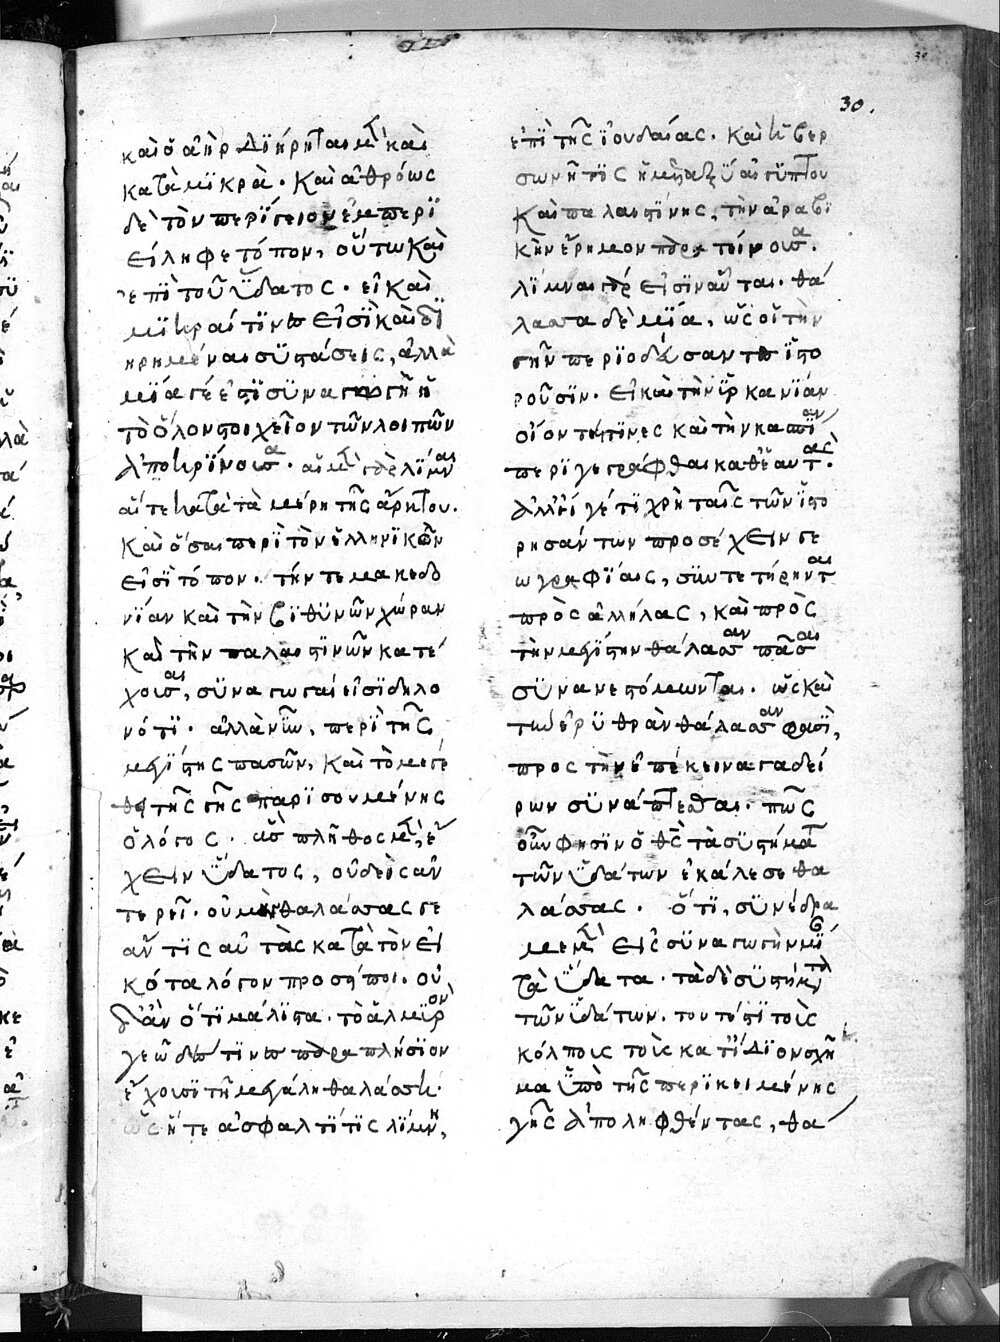 30.
καὶ ὁ ἀὴρ διήρηται μ(ὲν) καὶ
κατὰ μϊκρὰ. καὶ ἀθρόως
δὲ τὸν περίγειον ἐμπερϊ
είληφε τόπον, οὕτω καὶ
ἐπὶ τοῦ ὕδατος. εἰ καὶ
μϊκραί τϊνες εἰσὶ καὶ δϊ
ηρημέναι συστάσεις, ἀλλὰ
μία γέ ἐστϊ συναγωγὴ ἡ
τὸ ὅλον στοιχεῖον τῶν λοιπῶν
ἀποκρίνουσα. αἱ μ(ὲν) γὰρ λίμναι
αἵ τε κατὰ τὰ μέρη τῆς ἄρκτου.
καὶ ὅσαι περὶ τὸν ἑλληνϊκὸν
εἰσὶ τόπον. τήν τε μακεδο
νίαν καὶ τὴν βϊθυνῶν χώραν
καὶ τὴν παλαιστινῶν κατέ
χουσαι, συναγωγαί εἰσϊ δηλο
νότι. ἀλλὰ νῦν, περὶ τῆς
μεγίστης πασῶν, καὶ τὸ μεγέ
θει τῆς γῆς παρϊσουμένης
ὁ λόγος. ὡς πλῆθος μ(ὲν), ἔ
χειν ὕδατος, οὐδεὶς ἀν
τερεῖ. οὐ μὲν θαλάσσας γε
ἄν τϊς αὐτὰς κατὰ τὸν εἰ
κότα λόγον προσείποι. οὐ
δ' ἂν ὅτϊ μάλιστα. τὸ ἁλμϊρὸν
γεῶδες τϊνες παραπλήσϊον
ἔχουσϊ τῆ μεγάλη θαλάσση.
ὡς ἥ τε ἀσφαλτῖτϊς λίμνη,
ἐπὶ τῆς ϊουδαίας. καὶ ἡ σερ
βωνῆτϊς ἡ μεταξὺ αἰγύπτου
καὶ παλαιστίνης, τὴν ἀραβϊ
κὴν ἔρημον παρατείνουσα.
λίμναι γὰρ εἰσὶν αὗται. θά
λασσα δὲ μία, ὡς οἱ τὴν
γῆν περϊοδεύσαντες ἱστο
ροῦσϊν. εἰ καὶ τὴν ὑρκανίαν
οἴονταί τϊνες καὶ τὴν κασπίαν
περϊγεγράφθαι καθ' ἑαυτάς.
ἀλλ' εἴ γέ τϊ χρὴ ταῖς τῶν ἱστο
ρησάντων προσέχειν γε
ωγραφίαις, συντετήρηνται
πρὸς ἀλλήλας, καὶ πρὸς
τὴν μεγίστην θάλασσαν πᾶσαι
συναναστόμωνται. ὡς καὶ
τὴν ἐρυθρὰν θάλασσαν φασὶ,
προς τὴν ἐπέκεινα γαδεί
ρων συνάπτεσθαι. πῶς
οὖν φησὶν ὁ θ(εὸ)ς τὰ συστήματα
τῶν ὑδάτων ἐκάλεσε θα
λάσσας. ὅτι, συνέδρα
με μ(ὲν) εἰς συναγωγὴν μϊὰν
τὰ ὕδατα. τὰ δὲ συστήματα
τῶν ὑδάτων. τουτέστι τοὺς
κόλπους τοὺς κατ' ἴδιον σχῆ
μα ὑπὸ τῆς περϊκειμένης
γῆς ἀποληφθέντας, θα